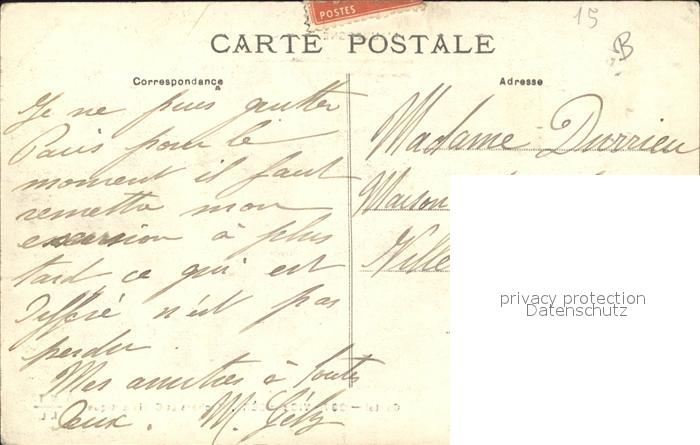 POSTES
15
B
CARTE POSTALE
Correspondance
Adresse
Je ne puis quitter
Paris pour le
moment il faut
remettre mon
excursion à plus
tard ce qui est
differé n'est pas
perdu.
Mes amitiés à toutes
deux. M.
Madame Durrieu
Maison
Ville
privacy protection
Datenschutz